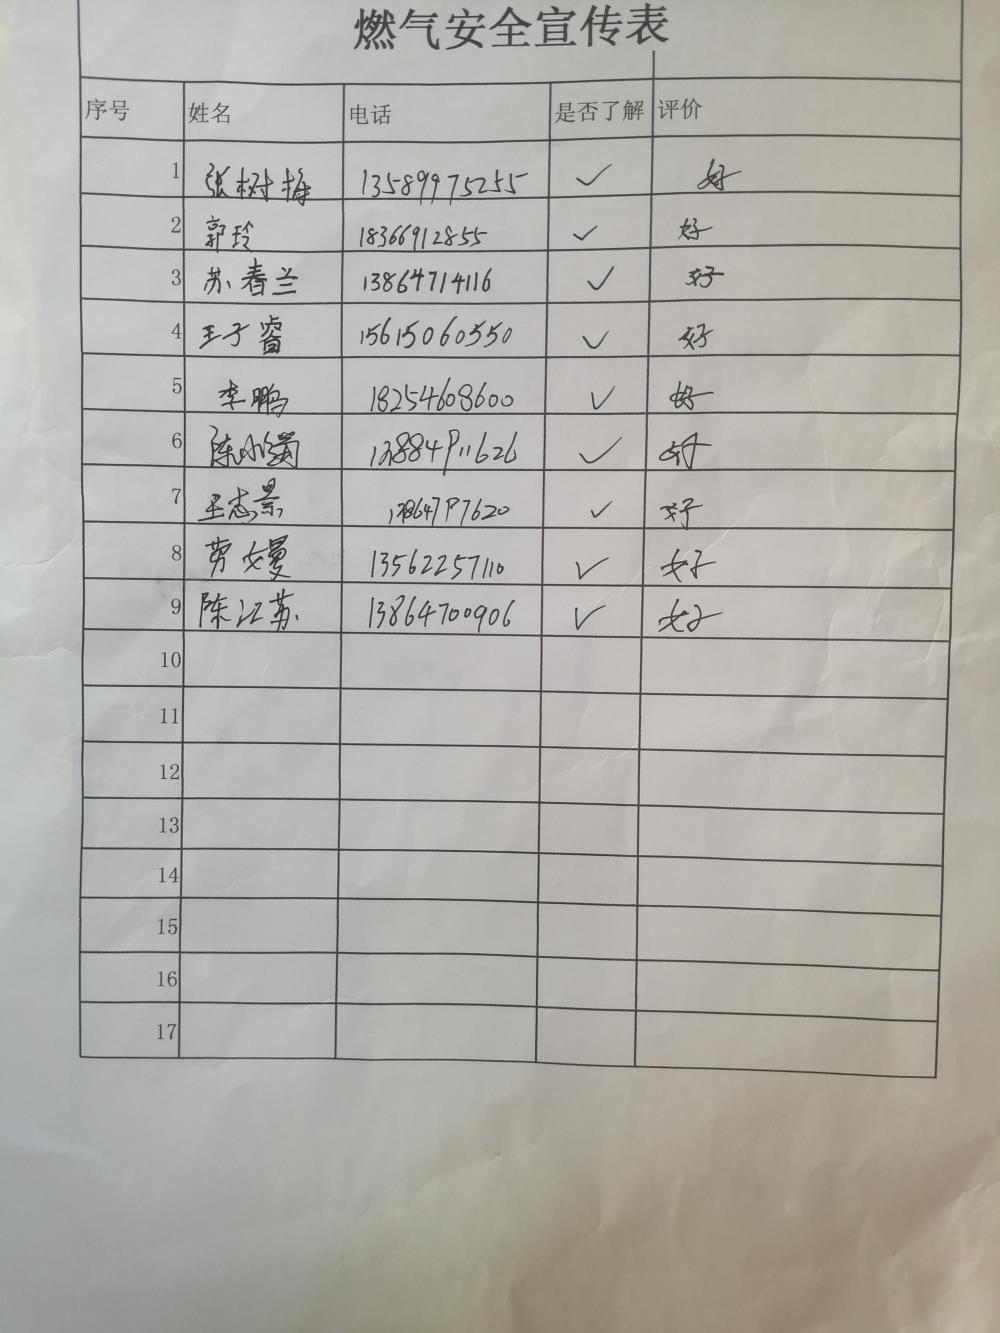 燃气安全宣传表
序号 姓名 电话 是否了解 评价
1 张树梅 13589975255 ✓ 好
2 郭玲 18366912855 ✓ 好
3 苏春兰 13864714116 ✓ 好
4 王子睿 15615060550 ✓ 好
5 李鹏 18254608600 ✓ 好
6 陈 13884911626 ✓ 好
7 王志景 13864797620 ✓ 好
8 劳 13562257110 ✓ 好
9 陈江苏 13864700906 ✓ 好
10
11
12
13
14
15
16
17